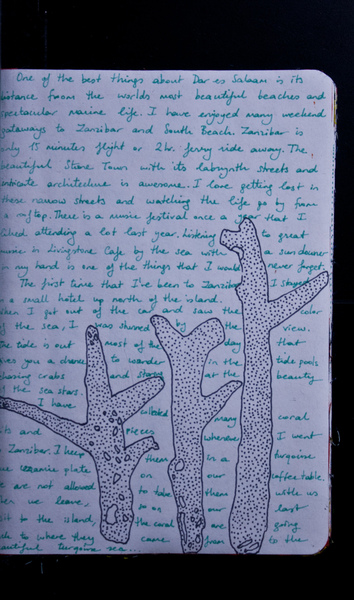 One of the best things about Dar es Salaam is its
distance from the worlds most beautiful beaches and
spectacular marine life. I have enjoyed many weekend
getaways to Zanzibar and South Beach. Zanzibar is
only 15 minutes flight or 2hr. ferry ride away. The
beautiful Stone Town with its labyrinth streets and
intricate architecture is awesome. I love getting lost in
these narrow streets and watching the life go by from
a rooftop. There is a music festival once a year that I
liked attending a lot last year. Listening to great
music in Livingstone Cafe by the sea with a sundowner
in my hand is one of the things that I would never forget.
The first time that I've been to Zanzibar I stayed
in a small hotel up north of the island.
When I got out of the car and saw the color
of the sea, I was stunned by the views.
The tide is out most of the day that
gives you a chance to wander in the tide pools
chasing crabs and staring at the beauty
of the sea stars.
I have collected many coral
pieces wherever I went
in Zanzibar. I keep them in a turquoise
ceramic plate on our coffee table.
We are not allowed to take them with us
when we leave, so on our last
visit to the island, the coral are going
back to where they came from to the
beautiful turquoise sea...